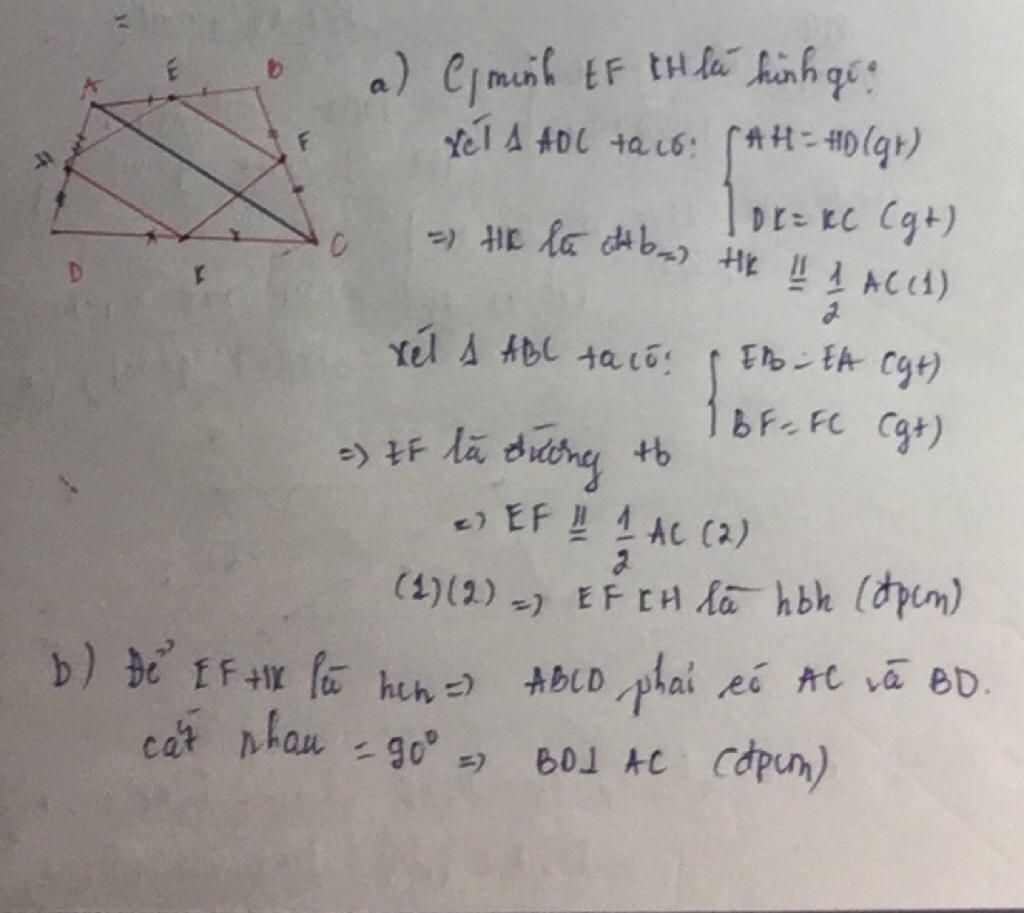 =
A E B
H F
D K C
a) C/minh EFKH là hình gì?
xét Δ ADC ta có: { AH = HD (gt)
DK = KC (gt)
=> HK là đtb => HK // = 1/2 AC (1)
xét Δ ABC ta có: { EB = EA (gt)
BF = FC (gt)
=> EF là đường tb
=> EF // = 1/2 AC (2)
(1)(2) => EFKH là hbh (đpcm)
b) Để EFHK là hcn => ABCD phải có AC và BD.
cắt nhau = 90° => BD⊥AC (đpcm)